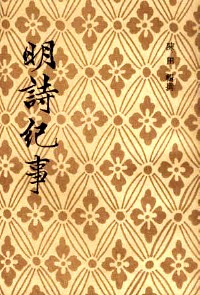 陳田 輯撰
明詩紀事